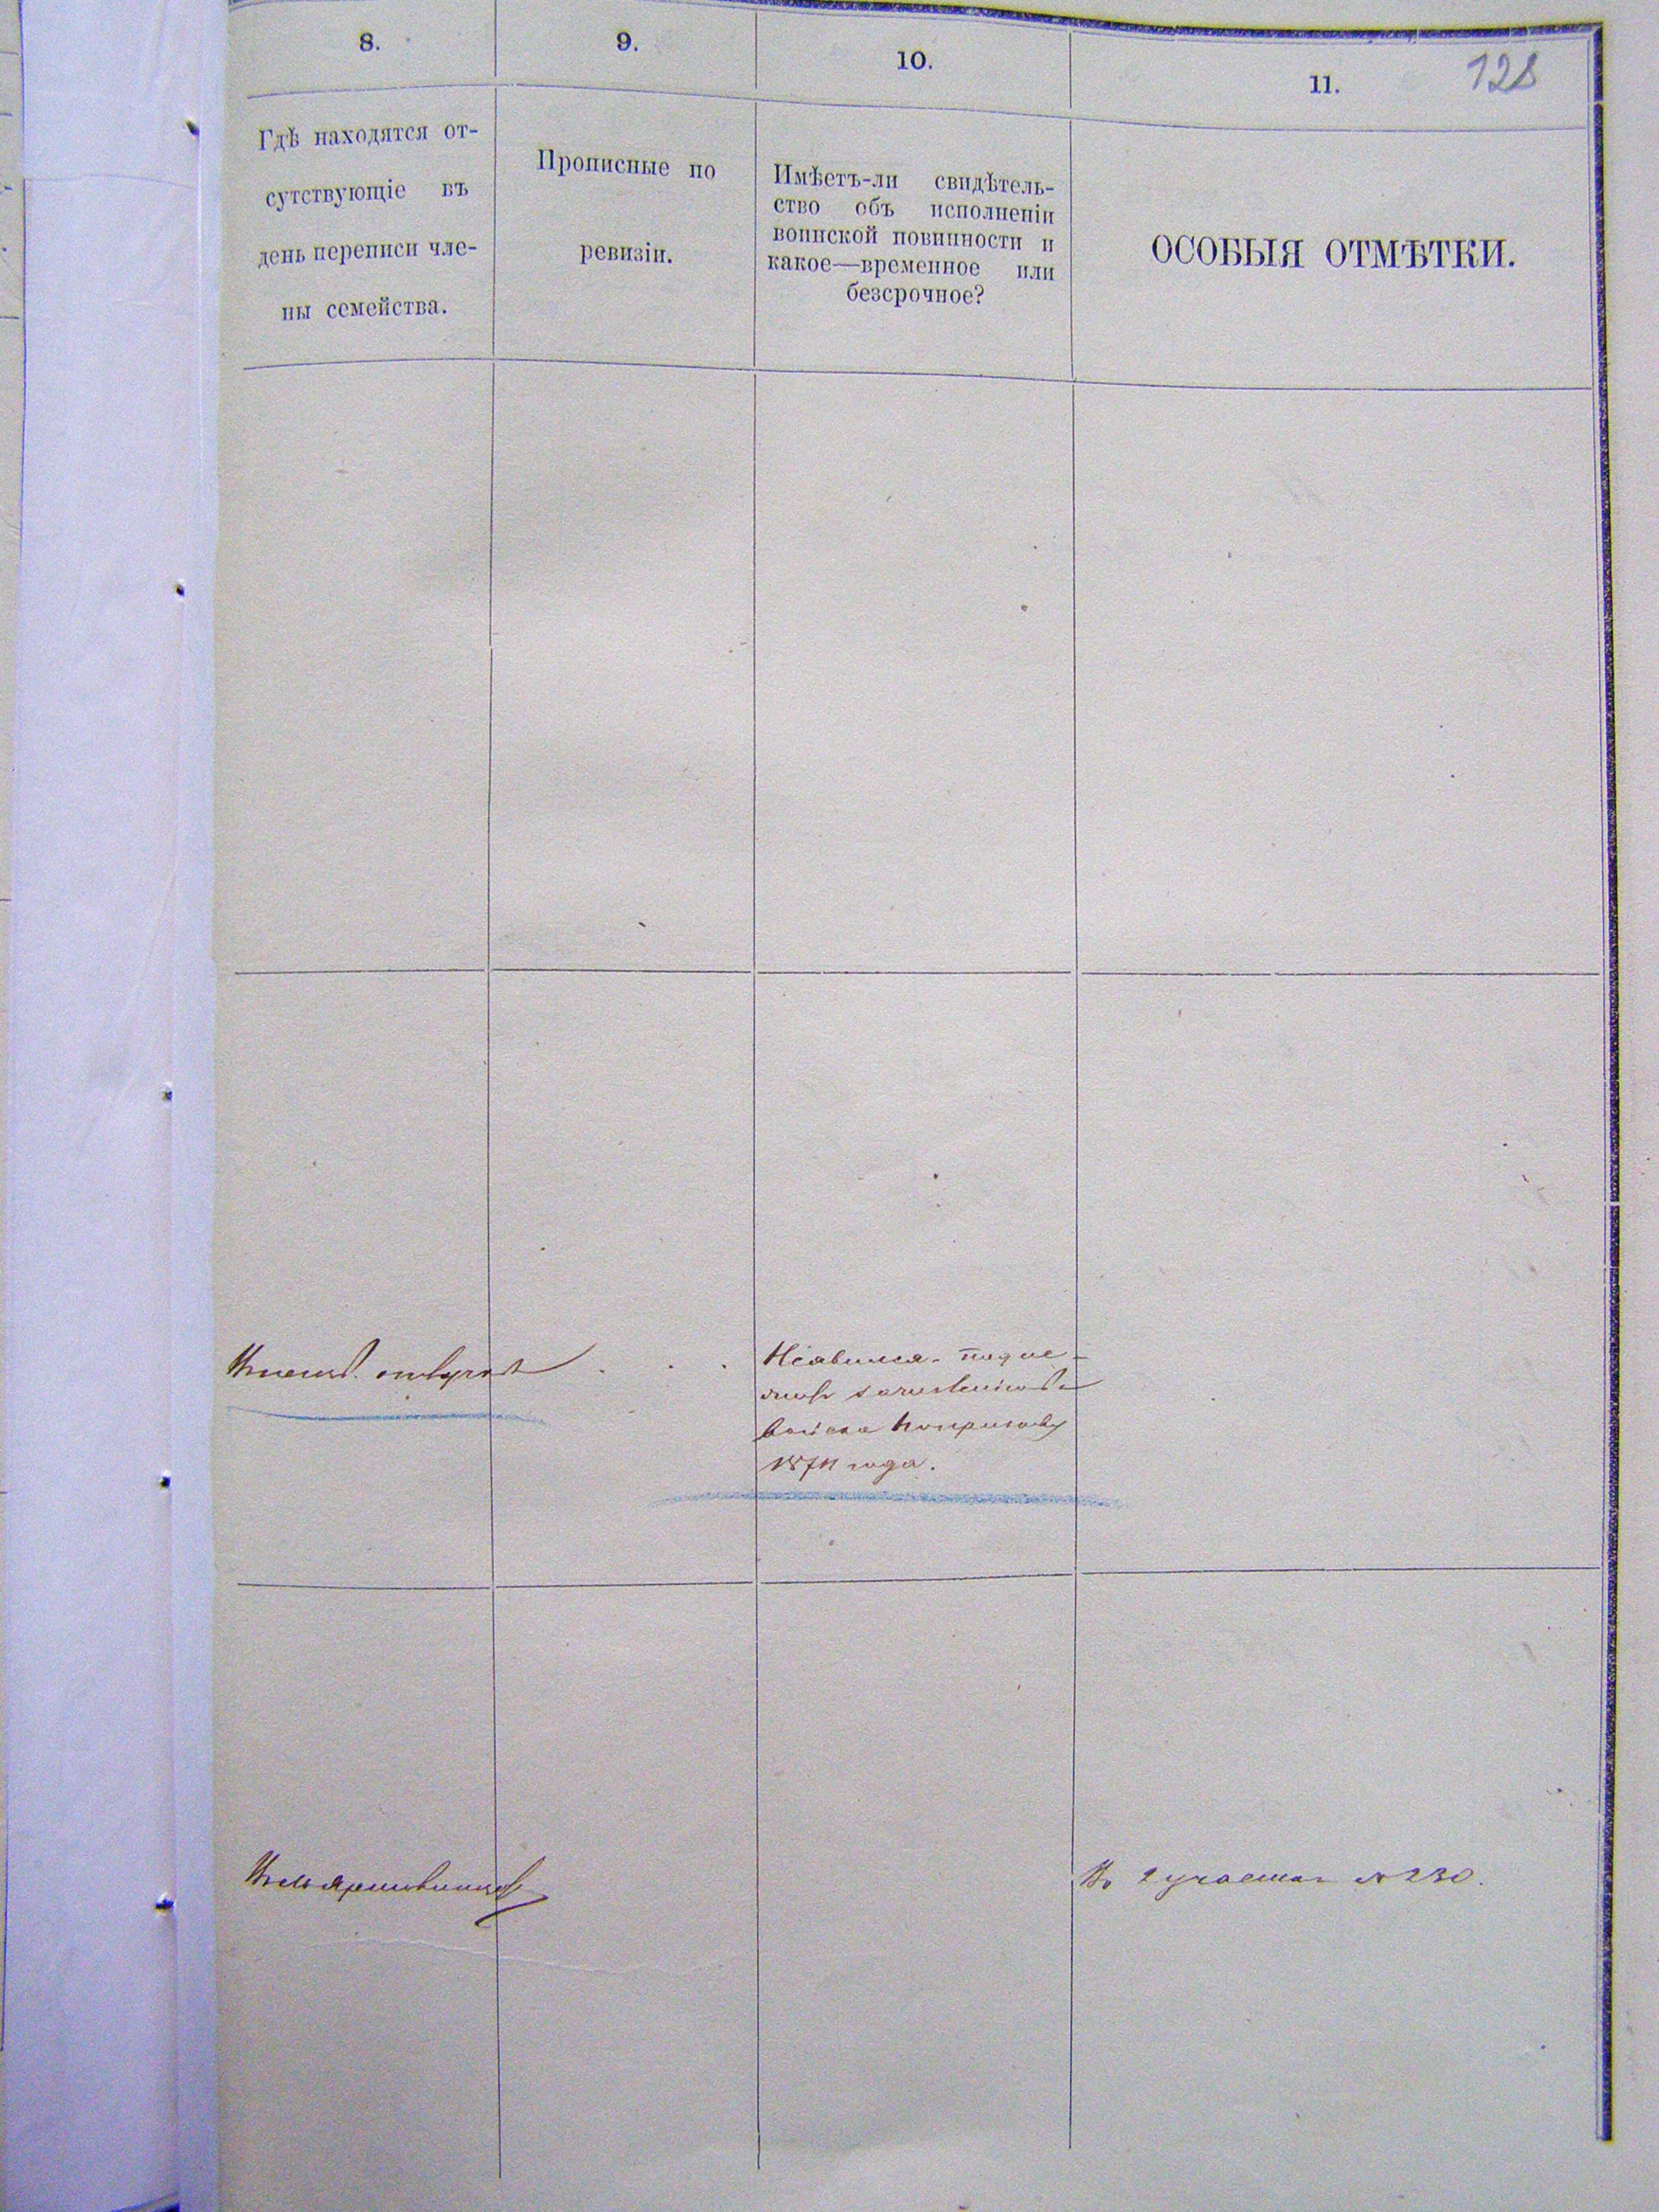 8.
9.
10.
11.
128
Гдѣ находятся от-
сутствующіе въ
день переписи чле-
ны семейства.
Прописные по
ревизіи.
Имѣетъ-ли свидѣтель-
ство объ исполненіи
воинской повинности и
какое—временное или
безсрочное?
ОСОБЫЯ ОТМѢТКИ.
Неявился. подле
войска
года.
Въ 2 участкѣ № 230.